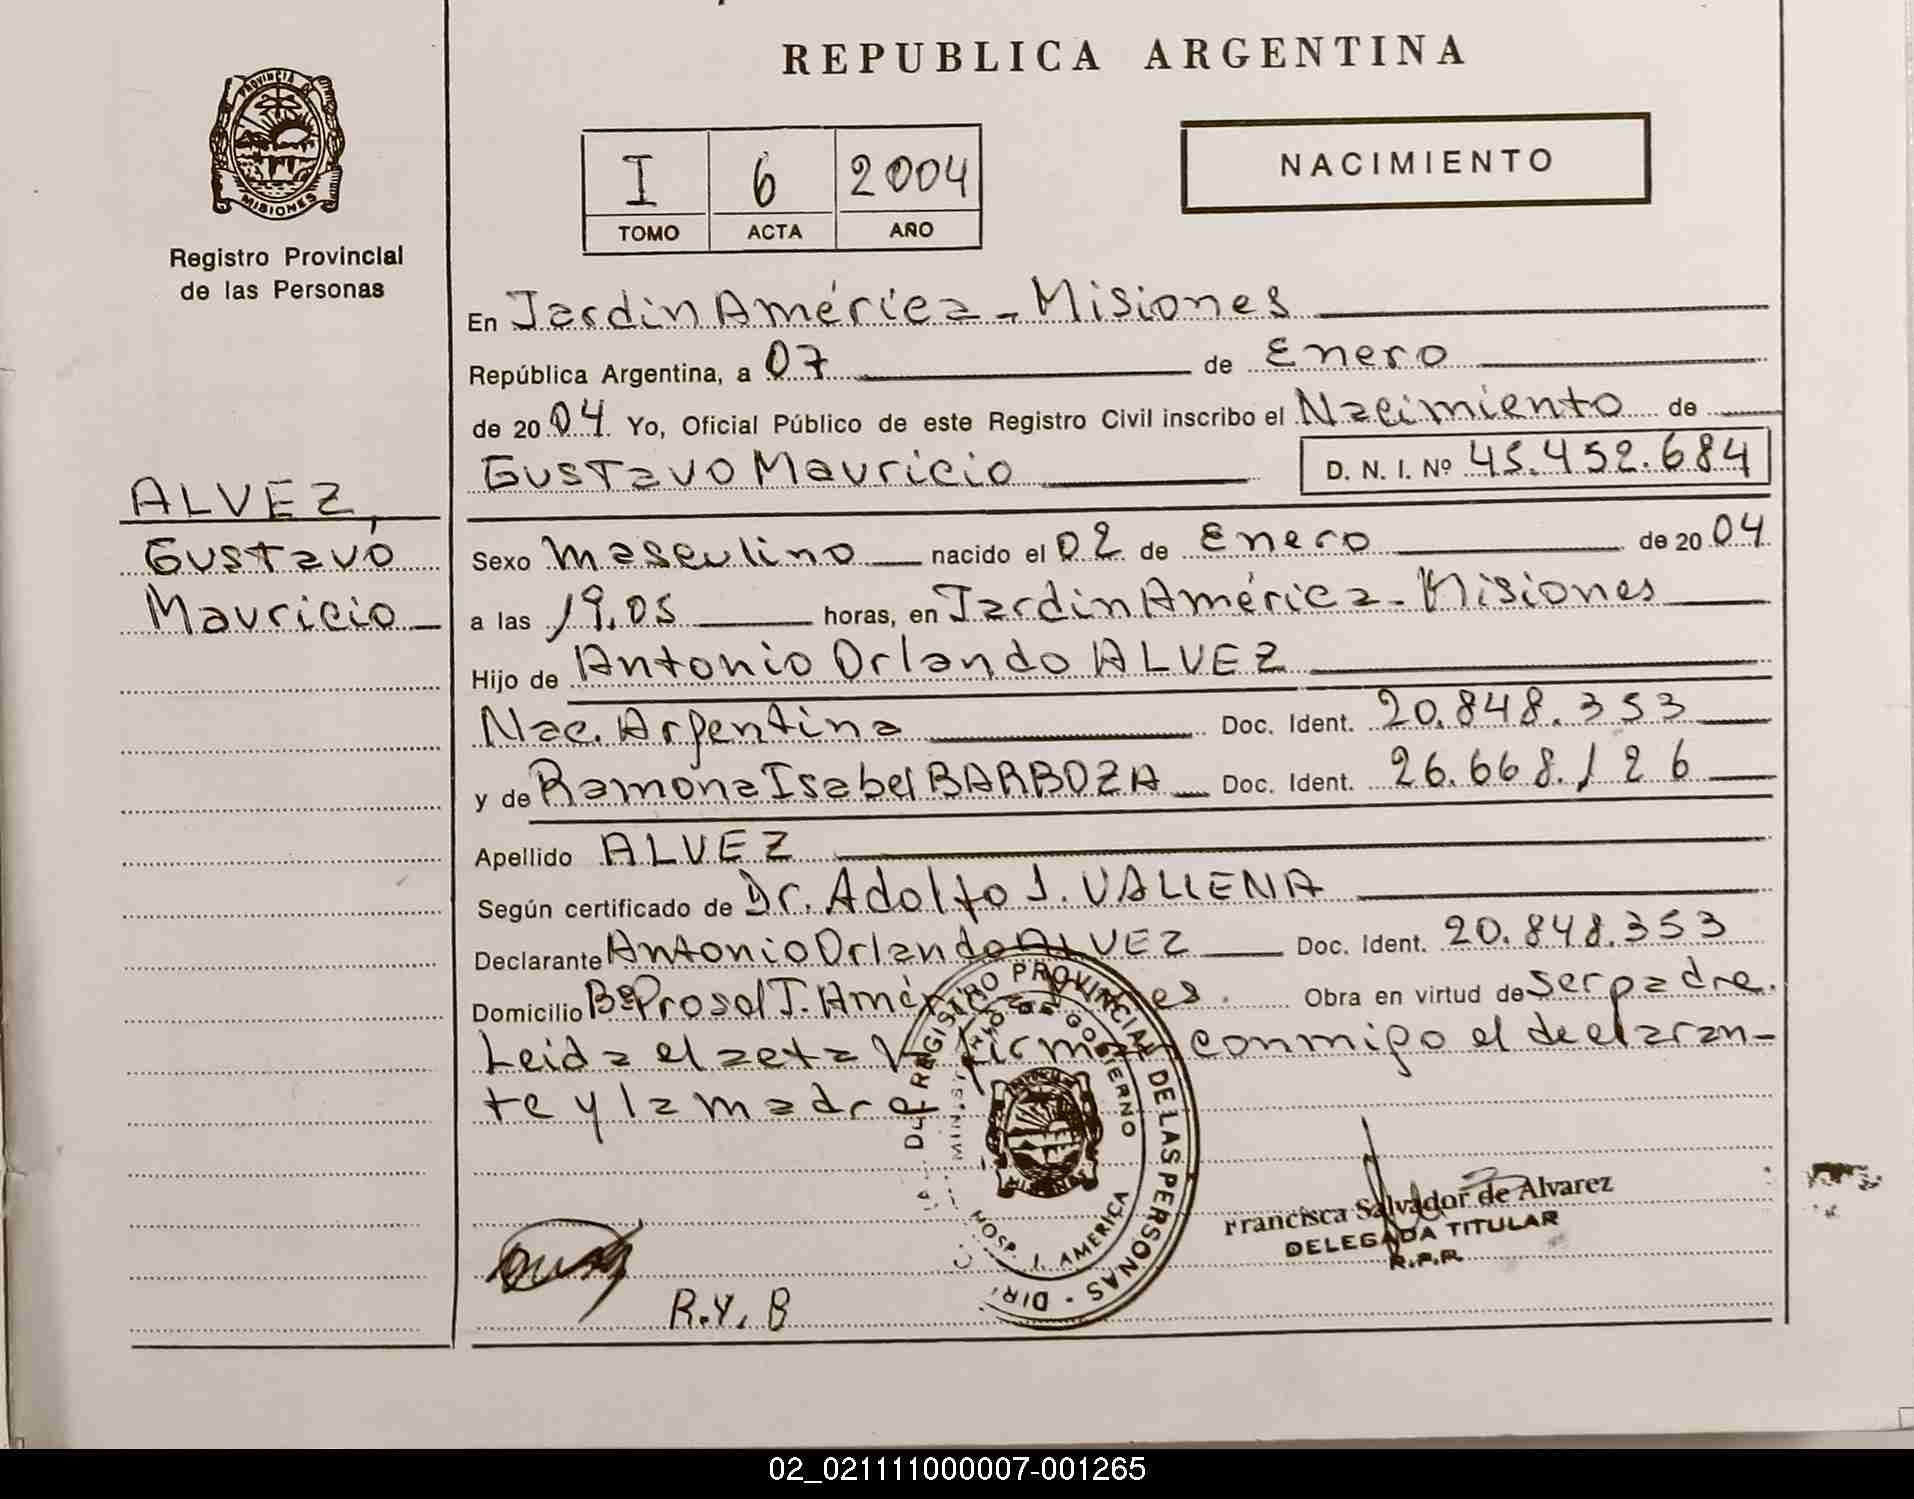 REPUBLICA ARGENTINA
PROVINCIA DE
MISIONES
Registro Provincial
de las Personas
I 6 2004
TOMO ACTA AÑO
NACIMIENTO
En Jardín América - Misiones
República Argentina, a 07 de Enero
de 2004 Yo, Oficial Público de este Registro Civil inscribo el Nacimiento de
Gustavo Mauricio D. N. I. Nº 45.452.684
ALVEZ,
Gustavo
Mauricio
Sexo Masculino nacido el 02 de Enero de 2004
a las 19,05 horas, en Jardín América - Misiones
Hijo de Antonio Orlando ALVEZ
Nac. Argentina Doc. Ident. 20.848.353
y de Ramona Isabel BARBOZA Doc. Ident. 26.668.126
Apellido ALVEZ
Según certificado de Dr. Adolfo J. VALLENA
Declarante Antonio Orlando ALVEZ Doc. Ident. 20.848.353
Domicilio Bº Prosol J. América Obra en virtud de ser padre.
Leida el acta la firman conmigo el declaran-
te y la madre
REGISTRO PROVINCIAL DE LAS PERSONAS - DIR
GOBIERNO
HOSP. J. AMERICA
Francisca Salvador de Alvarez
DELEGADA TITULAR
R.P.P.
R.Y.B
02_021111000007-001265